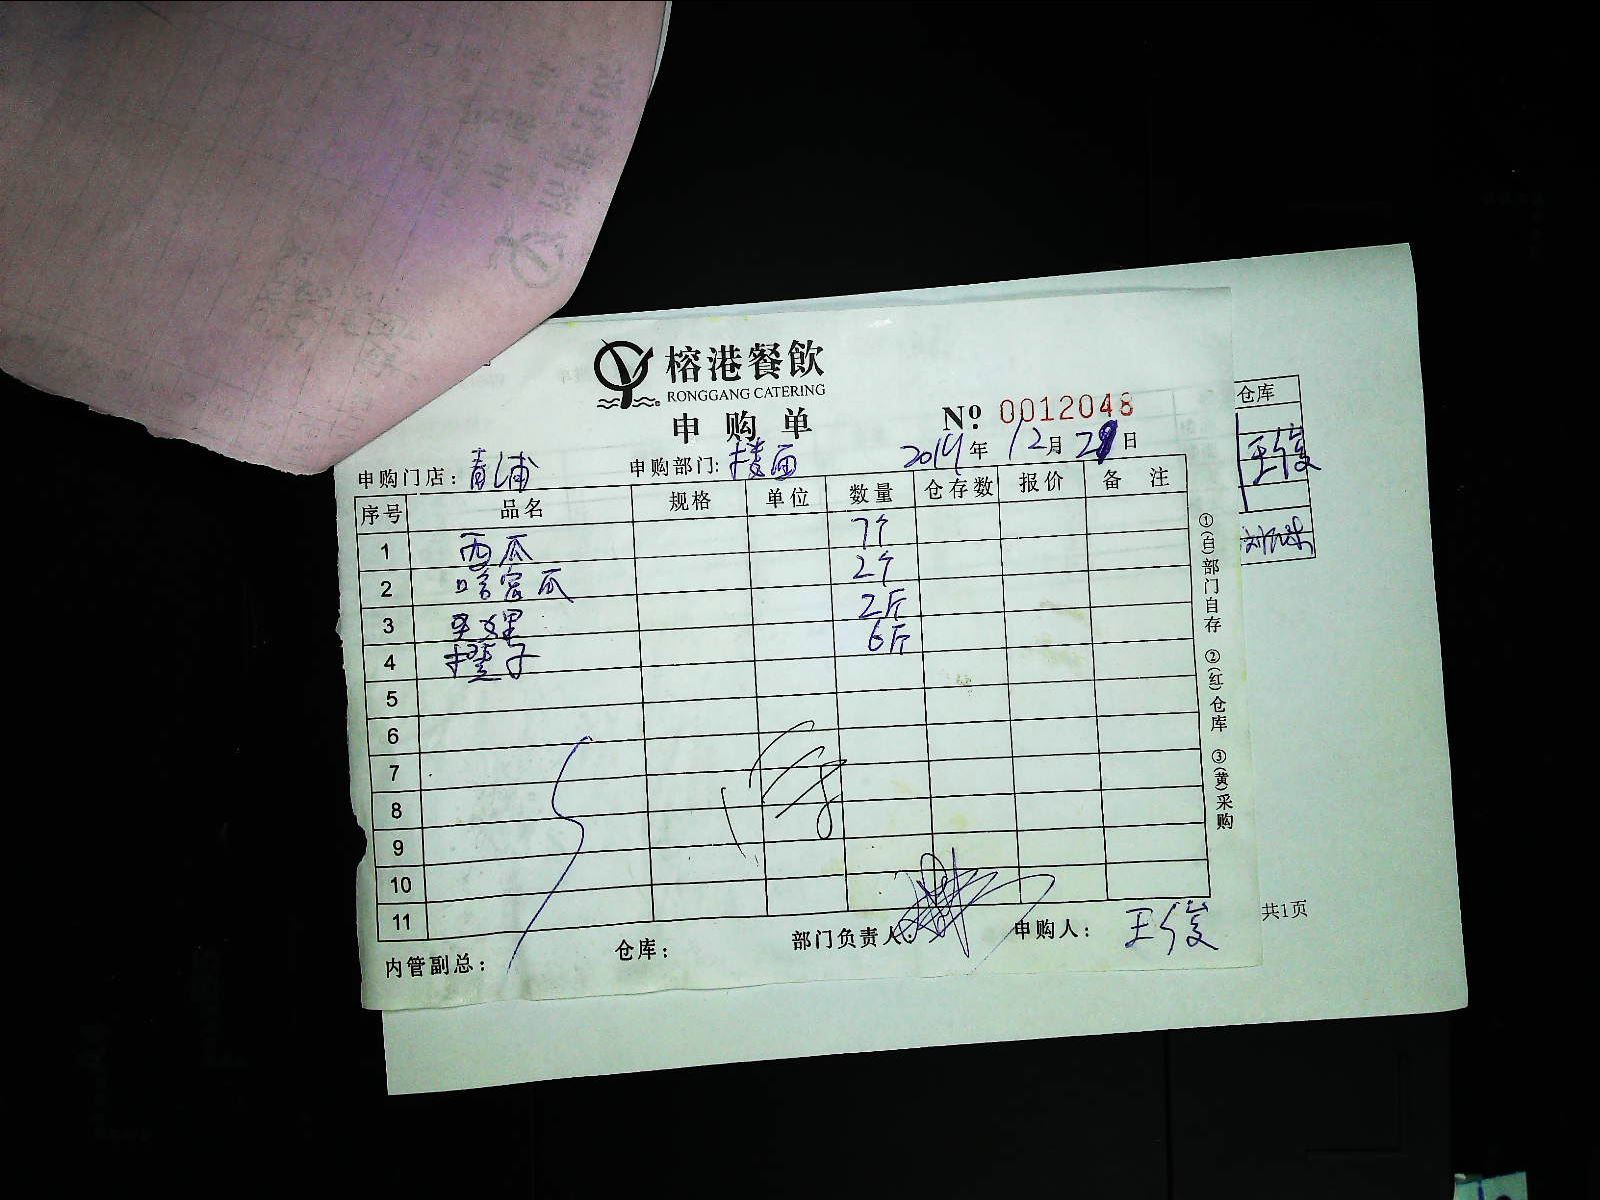 榕港餐飲
RONGGANG CATERING
申购单
Nº: 0012048
申购门店: 青浦 申购部门: 楼面 2019年12月29日
序号 品名 规格 单位 数量 仓存数 报价 备注
1 西瓜 7个
2 哈密瓜 2个
3 2斤
4 橙子 6斤
5
6
7
8
9
10
11
内管副总: 仓库: 部门负责人: 申购人: 王俊
①(白)部门自存 ②(红)仓库 ③(黄)采购
仓库
王俊
共1页